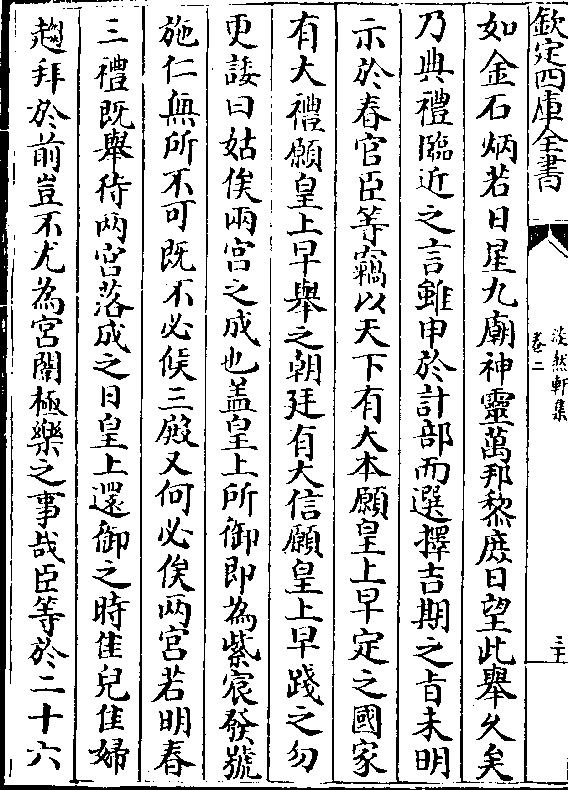 欽定四庫全書
淡然軒集
卷二
三十
如金石炳若日星九廟神靈萬邦黎庶日望此舉久矣
乃典禮臨近之言雖申於計部而選擇吉期之㫖未明
示於春官臣等竊以天下有大本願皇上早定之國家
有大禮願皇上早舉之朝廷有大信願皇上早踐之勿
更諉曰姑俟兩宮之成也盖皇上所御即為紫宸發號
施仁無所不可既不必候三殿又何必俟两宮若明春
三禮既舉待两宮落成之日皇上還御之時佳兒佳婦
趨拜於前豈不尤為宮闈極樂之事哉臣等於二十六